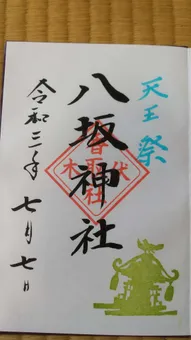 天王祭
八坂神社
令和三年七月七日